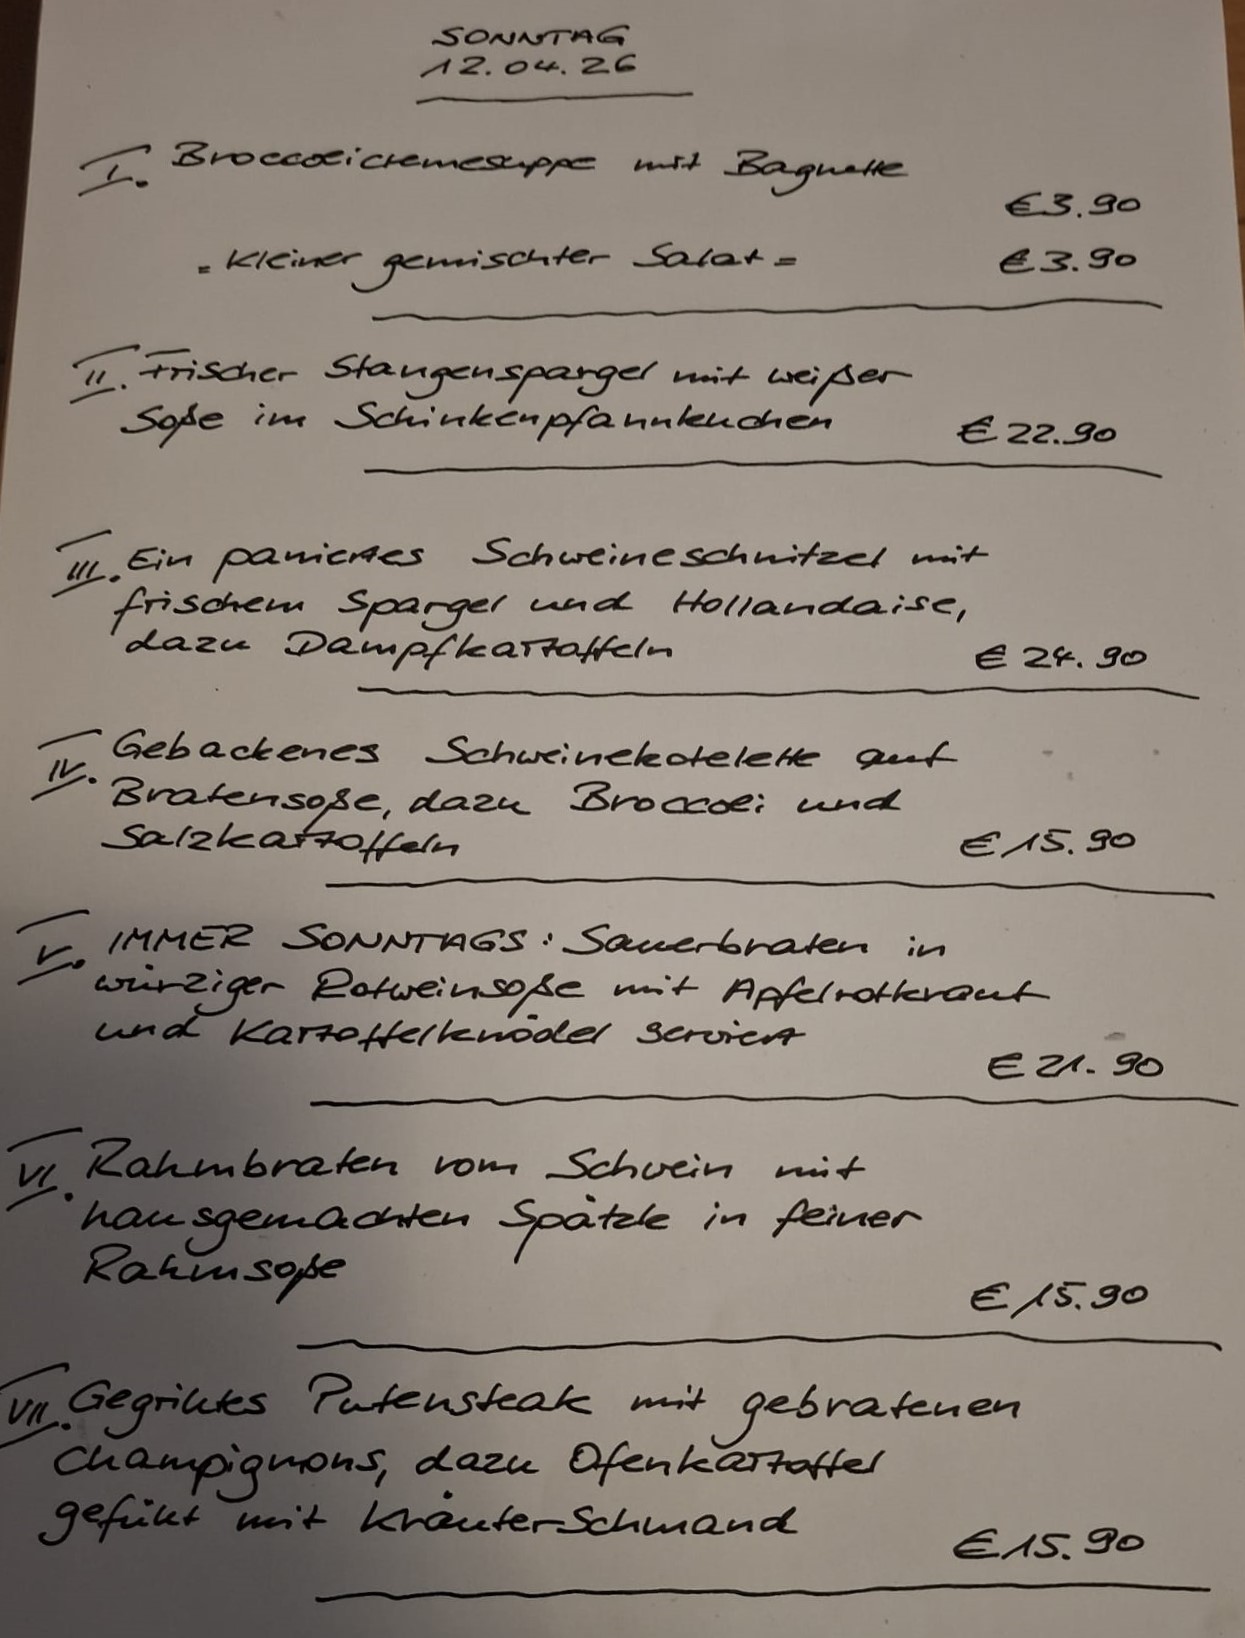 SONNTAG
12.04.26
I. Broccolicremesuppe mit Baguette
€3.90
= Kleiner gemischter Salat = €3.90
II. Frischer Stangenspargel mit weißer
Soße im Schinkenpfannkuchen €22.90
III. Ein paniertes Schweineschnitzel mit
frischem Spargel und Hollandaise,
dazu Dampfkartoffeln €24.90
IV. Gebackenes Schweinekotelette auf
Bratensoße, dazu Broccoli und
Salzkartoffeln €15.90
V. IMMER SONNTAGS: Sauerbraten in
würziger Rotweinsoße mit Apfelrotkraut
und Kartoffelknödel serviert
€21.90
VI. Rahmbraten vom Schwein mit
hausgemachten Spätzle in feiner
Rahmsoße
€15.90
VII. Gegrilltes Putensteak mit gebratenen
Champignons, dazu Ofenkartoffel
gefüllt mit Kräuterschmand
€15.90